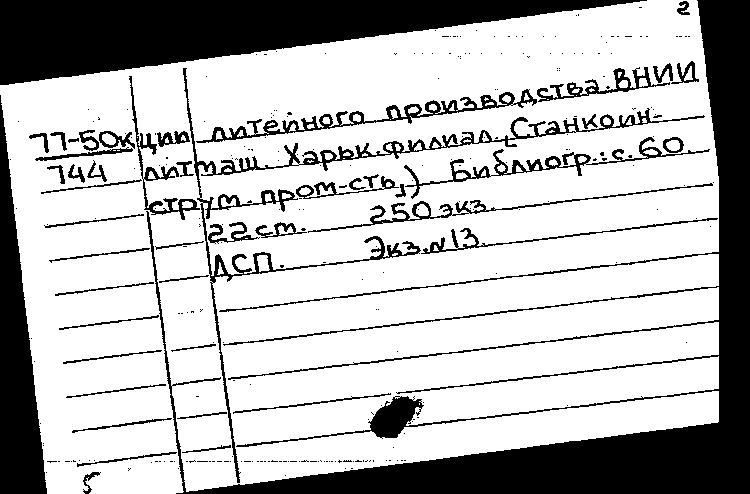 2
77-50к ции литейного производства. ВНИИ
744 литмаш. Харьк. филиал. (Станкоин-
струм. пром-сть,) Библиогр.: с. 60.
22 см. 250 экз.
ДСП. Экз. N 13.
5